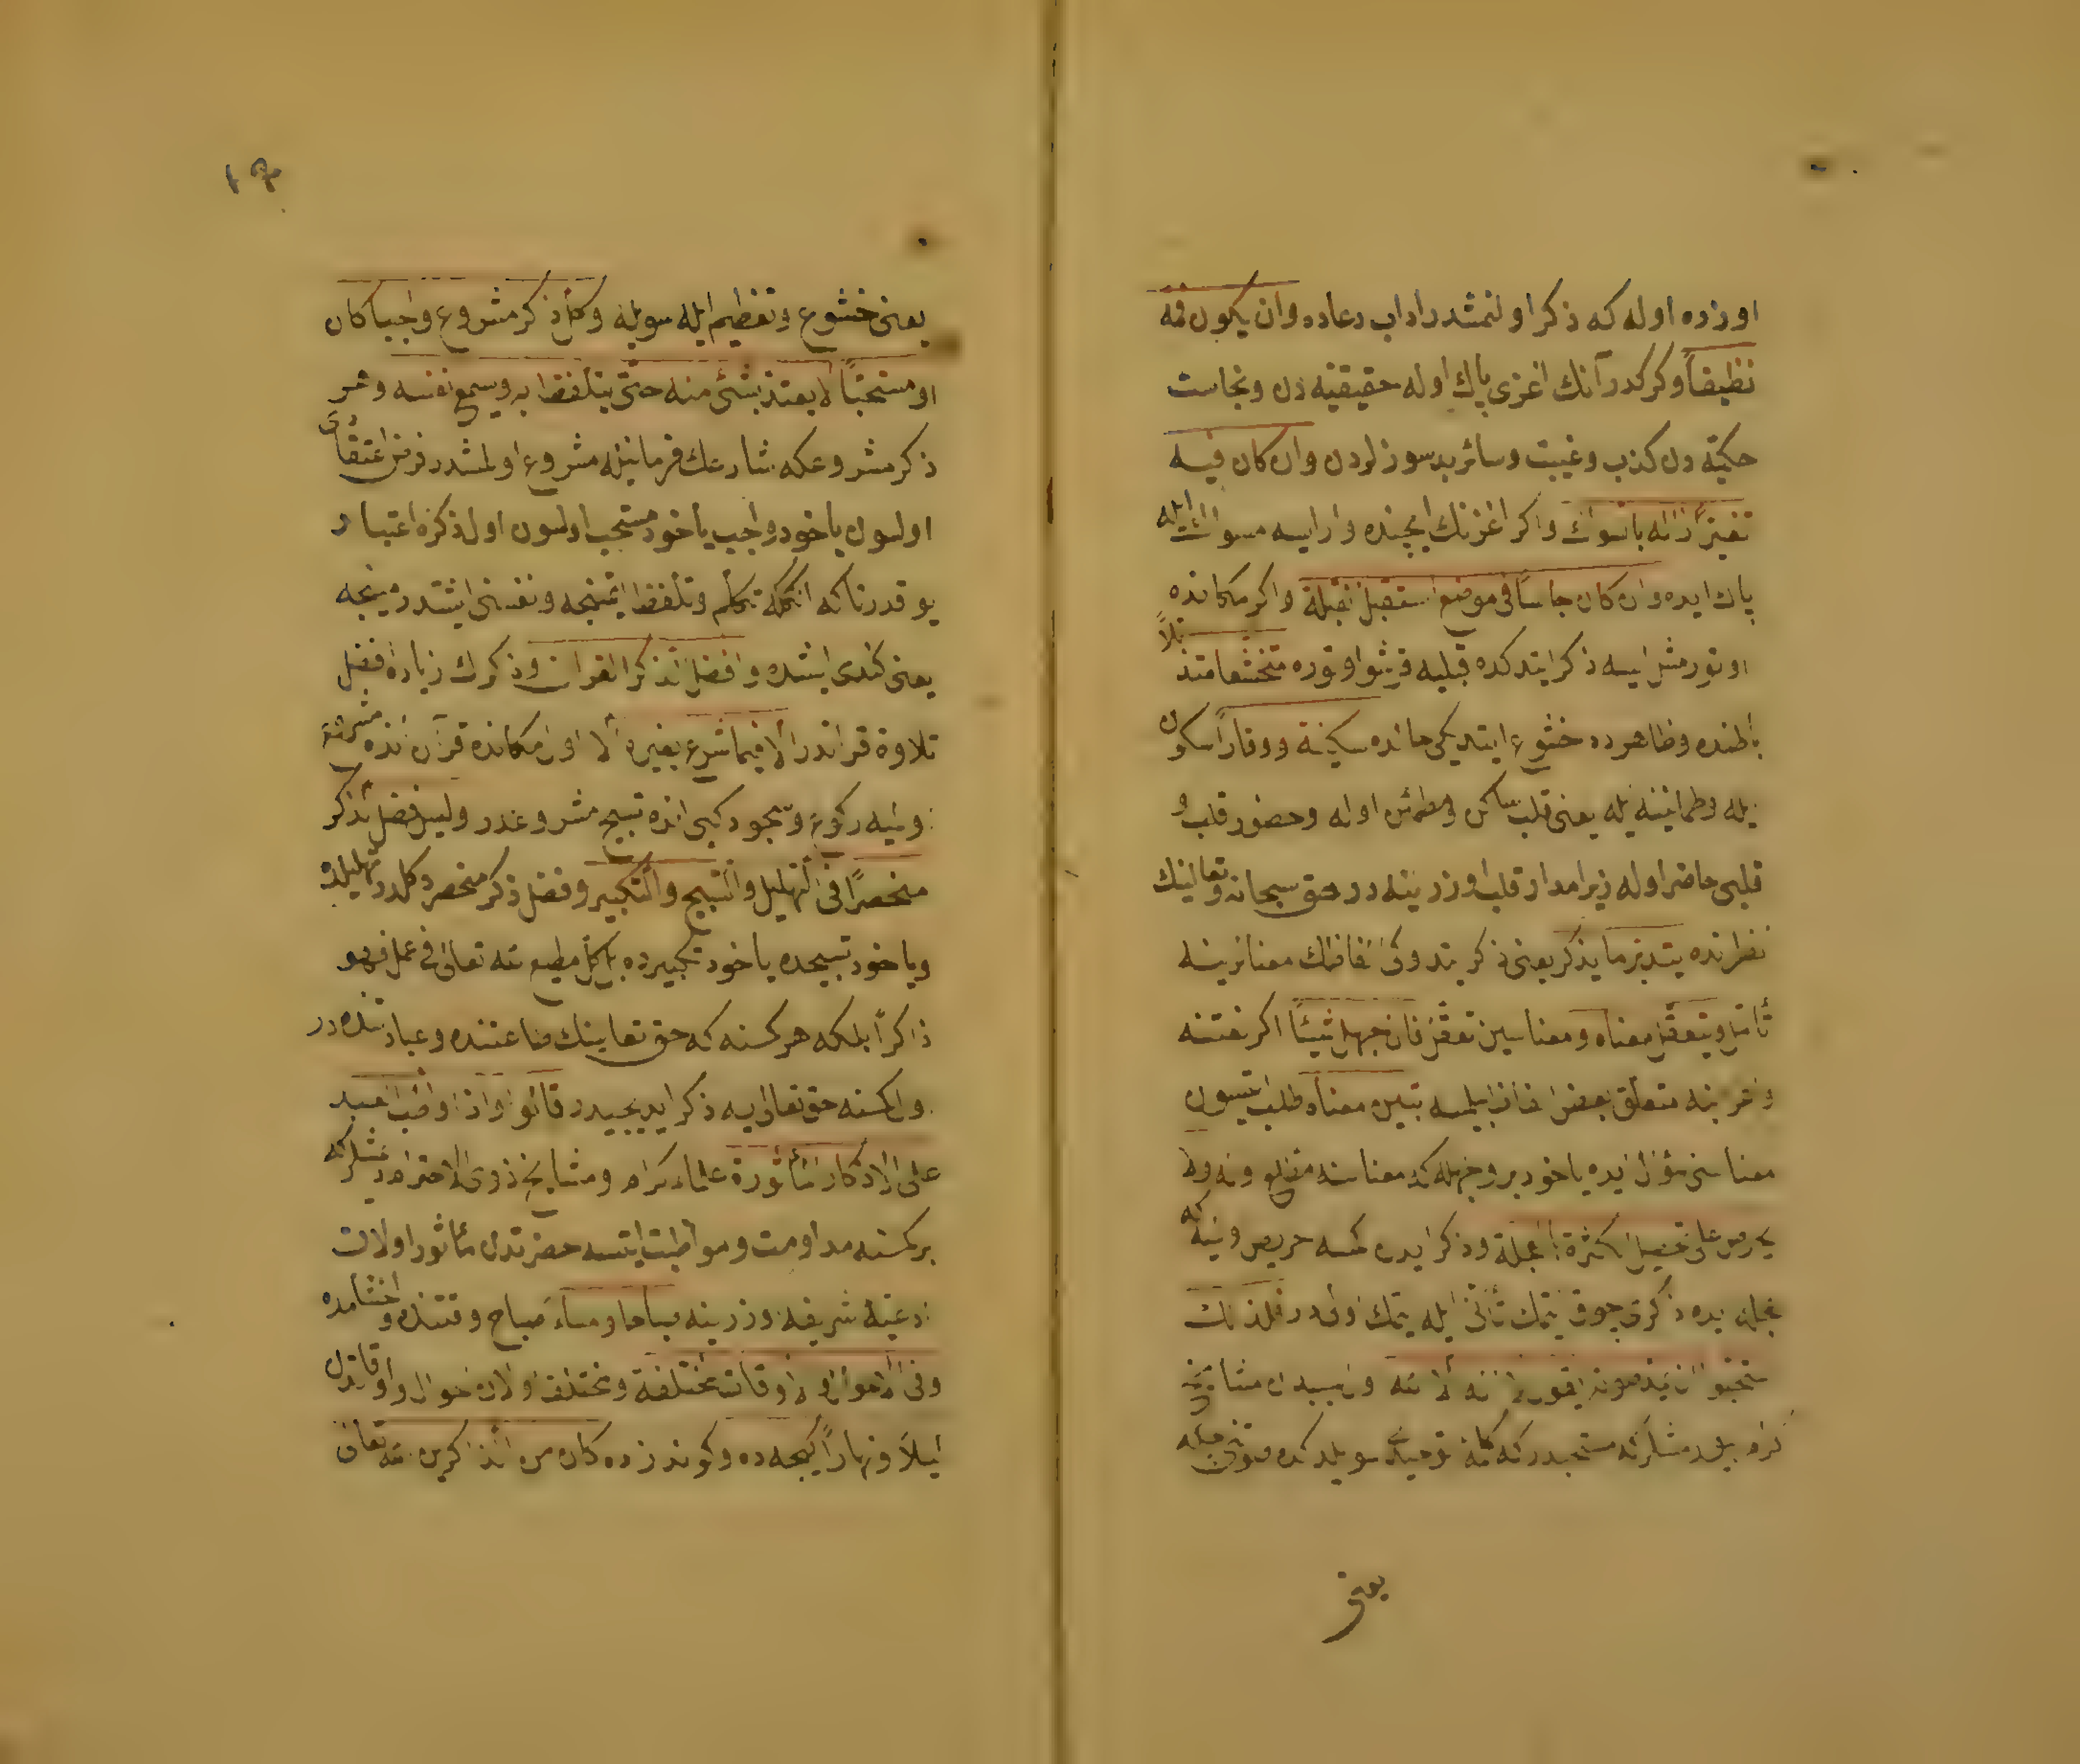 اوزره اوله که ذکر اولنمشدر اداب دعاده وان یکون فمه
نظیفاً و کرکدر آنك اغزی پاك اوله حقیقیه دن ونجاست
حکمیّه دن کذب وغیبت وسائر بد سوزلردن وان کان فیه
تغیّر ازاله بالسواك و اکر اغزنك ایچنده وارایسه مسواك ایله
پاك ایده وان کان جالساً فی موضع استقبل القبلة و اکر مکانده
اوتورمش ایسه ذکر ایتدکده قبلیه قرشو اوتوره متخشعا متذللاً
باطنده وظاهرده خشوع ایتدیکی حالده بسکینة ووقار اسکون
یله وطمانینه یله یعنی قلب ساکن ومطمئن اوله وحضور قلب و
قلبی حاضر اوله زیرا مدار قلب اوزرینه در حق سبحانه وتعالینك
نظرنده یتدبر ما یذکر یعنی ذکر الفاظنك معنالرینه
تأمل ویتعقل معناه ومعناسین تعقل فان جهل شیئاً اکر نفسنه
متعلق بعض الفاظ بیلمسه تبین معناه طلب ایتسون
معنا یاخود بر وجهله که معناسنه
یحرص علی تحصیل الکثرة بالعجلة و ذکر ایدن کمسه حریص
عجله یده ذکری چوق ایتمك تأنی ایله ایتمك اولی در فلذلك
استحبوا ان یمد صوته بقول لا اله الا الله
کرام مستحبدر که کلمهٔ توحیدی سویلدکده صوتنی
یعنی
١٩
یعنی خشوع وتعظیم ایله سویله وکل ذکر مشروع واجبا کان
او مستحبّاً لا یعتد بشئ منه حتی یتلفظ به ویسمع نفسه وهر
ذکر مشروعکه شارعك فرمانیله مشروع اولمشدر فرض اعتقادی
اولسون یاخود واجب یاخود مستحب اولسون اول ذکره اعتبار
یوقدر تاکه انکله تکلم وتلفظ ایتمینجه ونفسنی ایشتدرمینجه
یعنی کندی ایشده وافضل الذکر القران و ذکرك زیاده فضل
تلاوة قراندر الا فیما شرع بغیره الا اول مکانده قرآن انده مشروع
اولمیه رکوع وسجود کبی انده تسبیح مشروعدر ولیس فضل الذکر
منحصرًا فی التهلیل والتسبیح والتکبیر وفضل ذکر منحصر دکلدر تهلیلده
ویاخود تسبیحده یاخود تکبیرده بل کل مطیع لله تعالی فی عمل فهو
ذاکرٌ بلکه هر کمسنه که حق تعالینك طاعتنده وعبادتنده در
اول کمسنه حق تعالی یه ذکر ایدیجیدر قالوا واذا واظب العبد
علی الاذکار المأثورة علماء کرام ومشایخ ذوی الاحترام دیمشلرکه
بر کمسنه مداومت ومواظبت ایتسه حضرتدن مأثور اولان
ادعیهٔ شریفه اوزرینه صباحا ومساءً صباح وقتنده واخشامده
وفی الاحوال والاوقات المختلفة ومختلف اولان احوال واوقاتده
لیلاً ونهاراً کیجه ده و کوندزده کان من الذاکرین الله تعالی